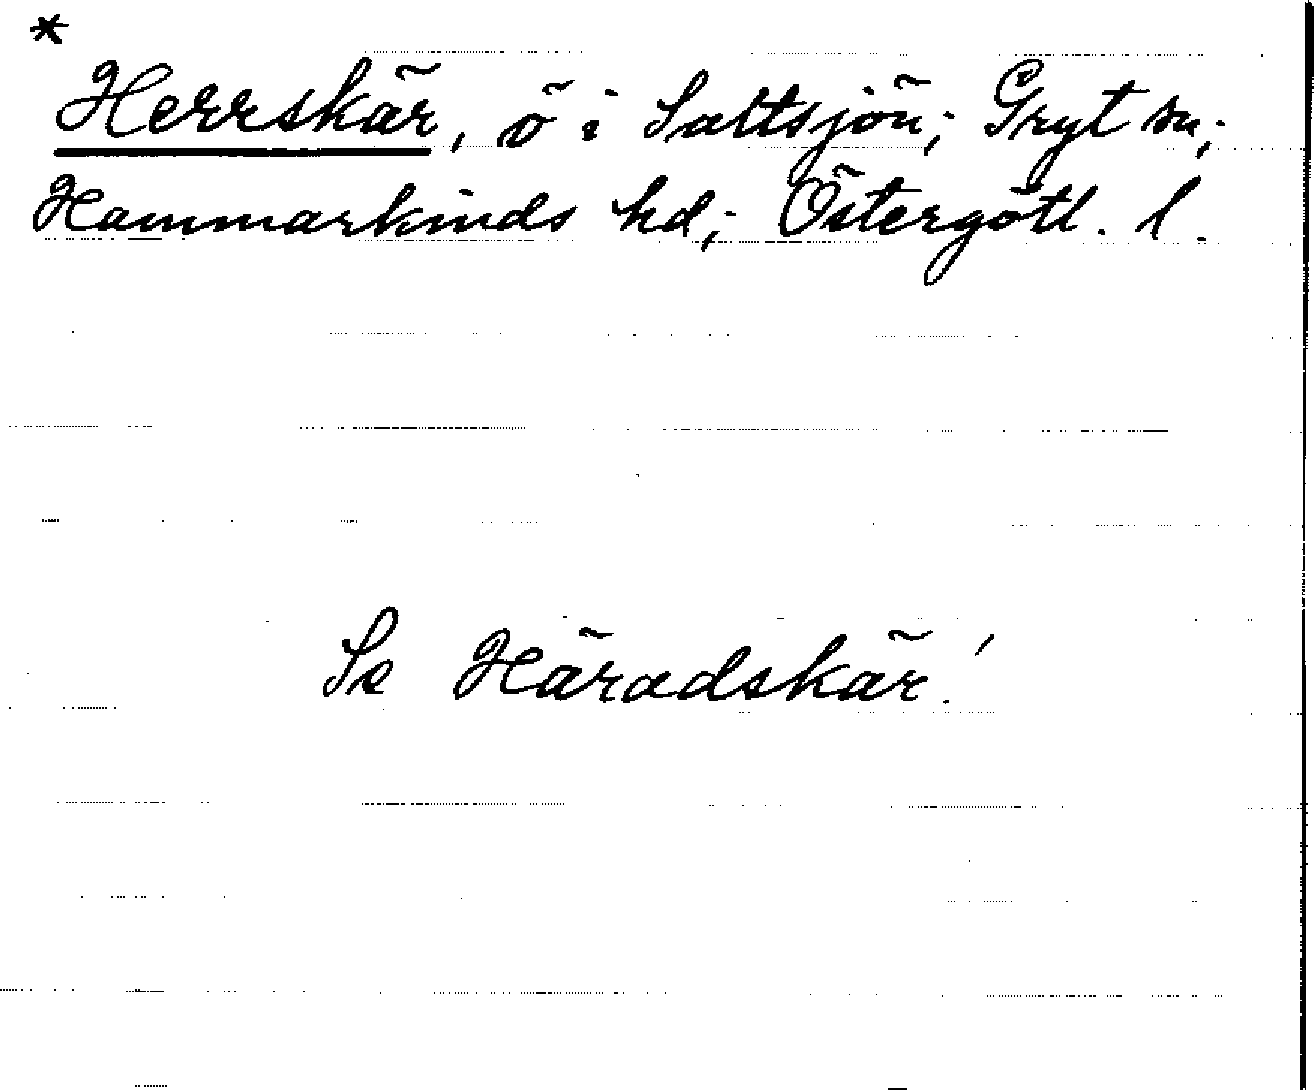 *
Herrskär, ö i Saltsjön; Gryt sn;
Hammarkinds hd; Östergötl. l.
Se Häradskär!